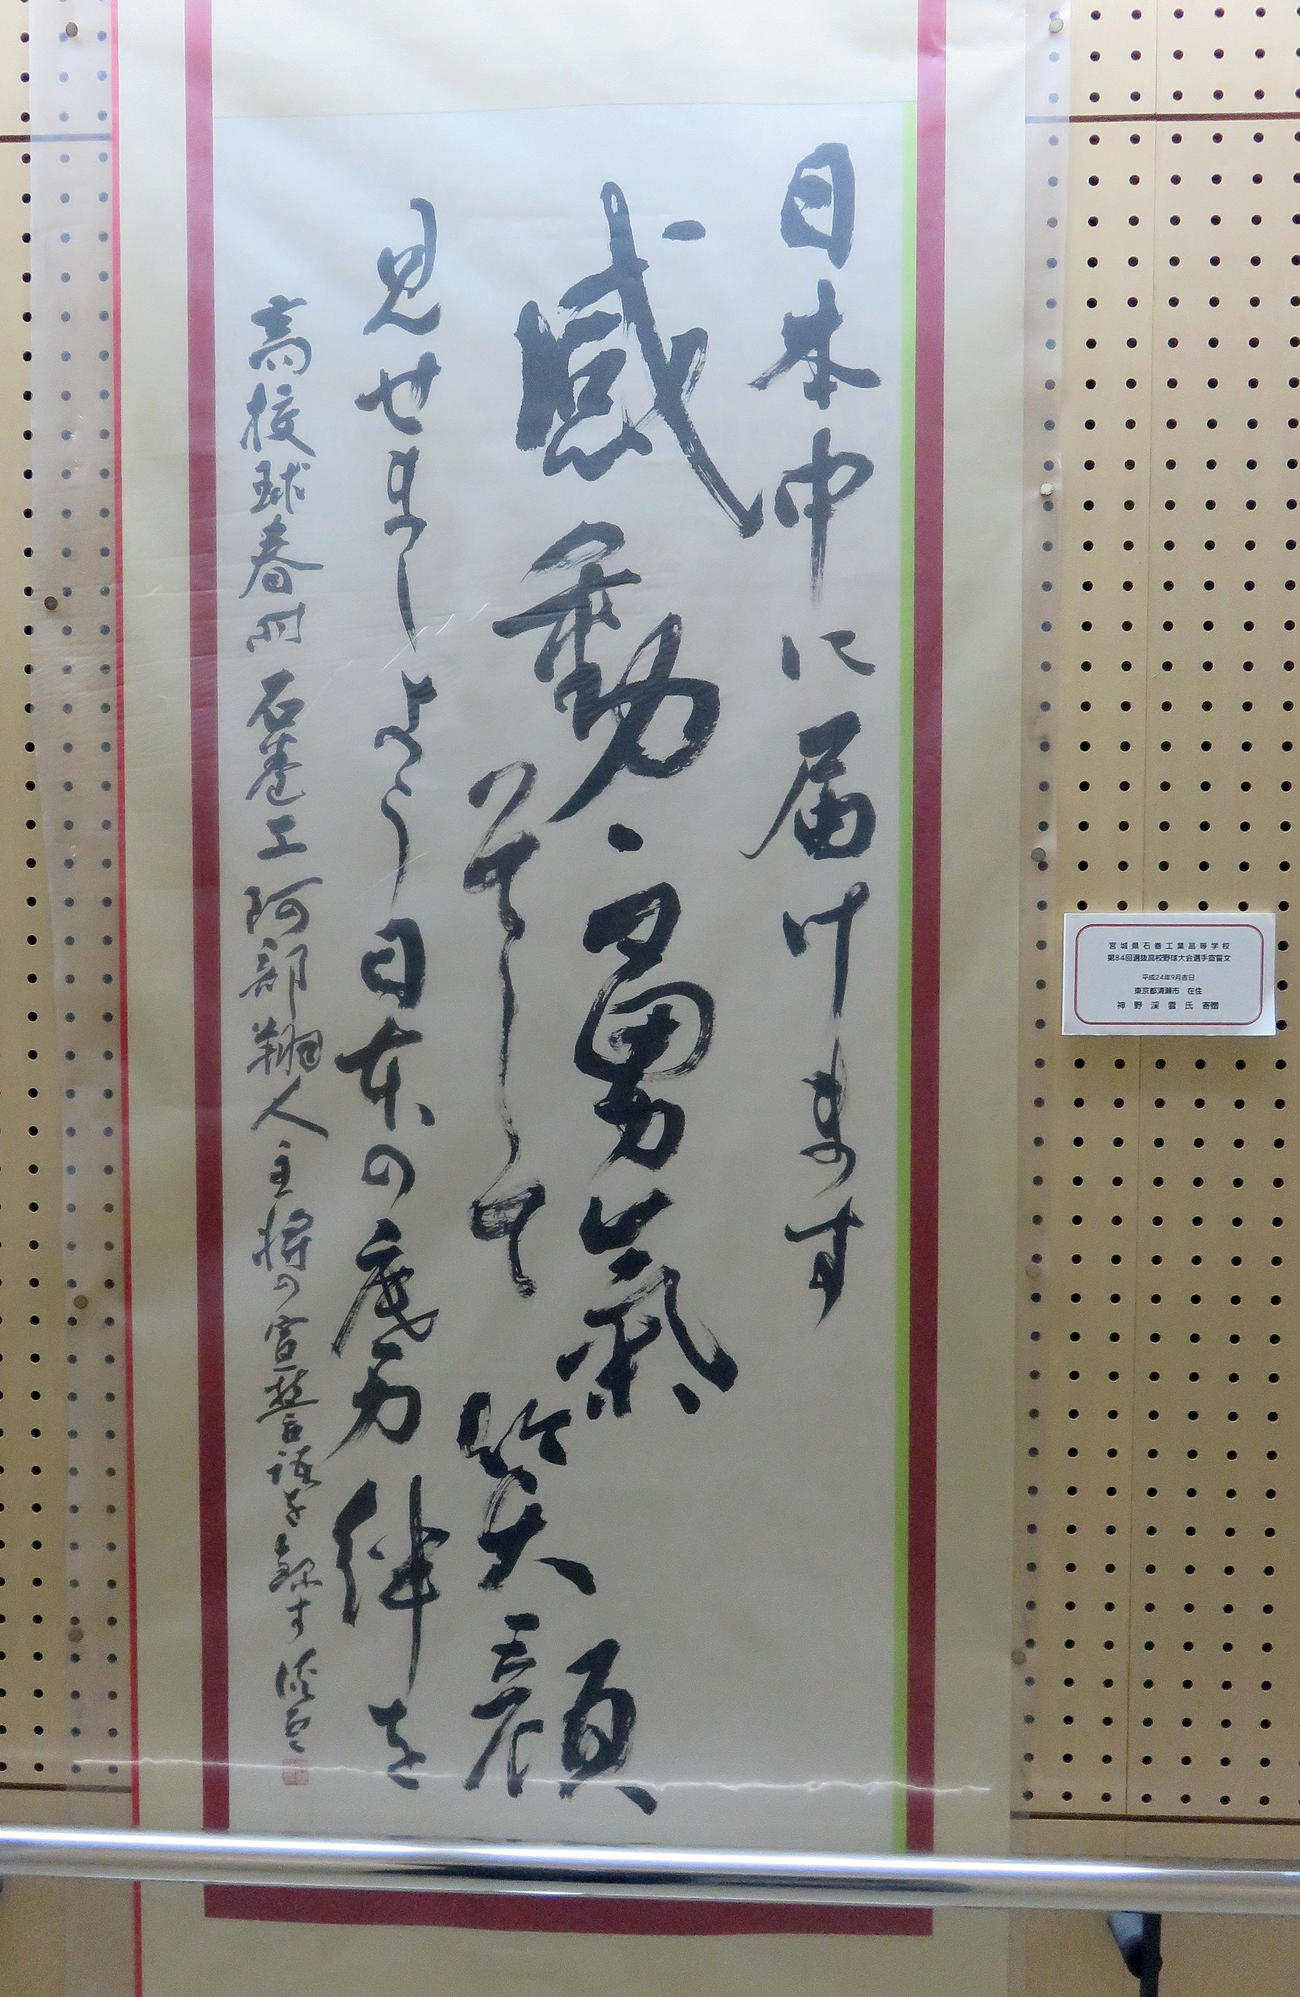 日本中に届けます
感動、勇氣
そして 笑顔
見せましょう日本の底力 絆を
高校球春附 石巻工 阿部翔人主将の宣誓語を録す 渓雲
宮城県石巻工業高等学校
第84回選抜高校野球大会選手宣誓文
平成24年9月吉日
東京都清瀬市 在住
神野渓雲氏 寄贈